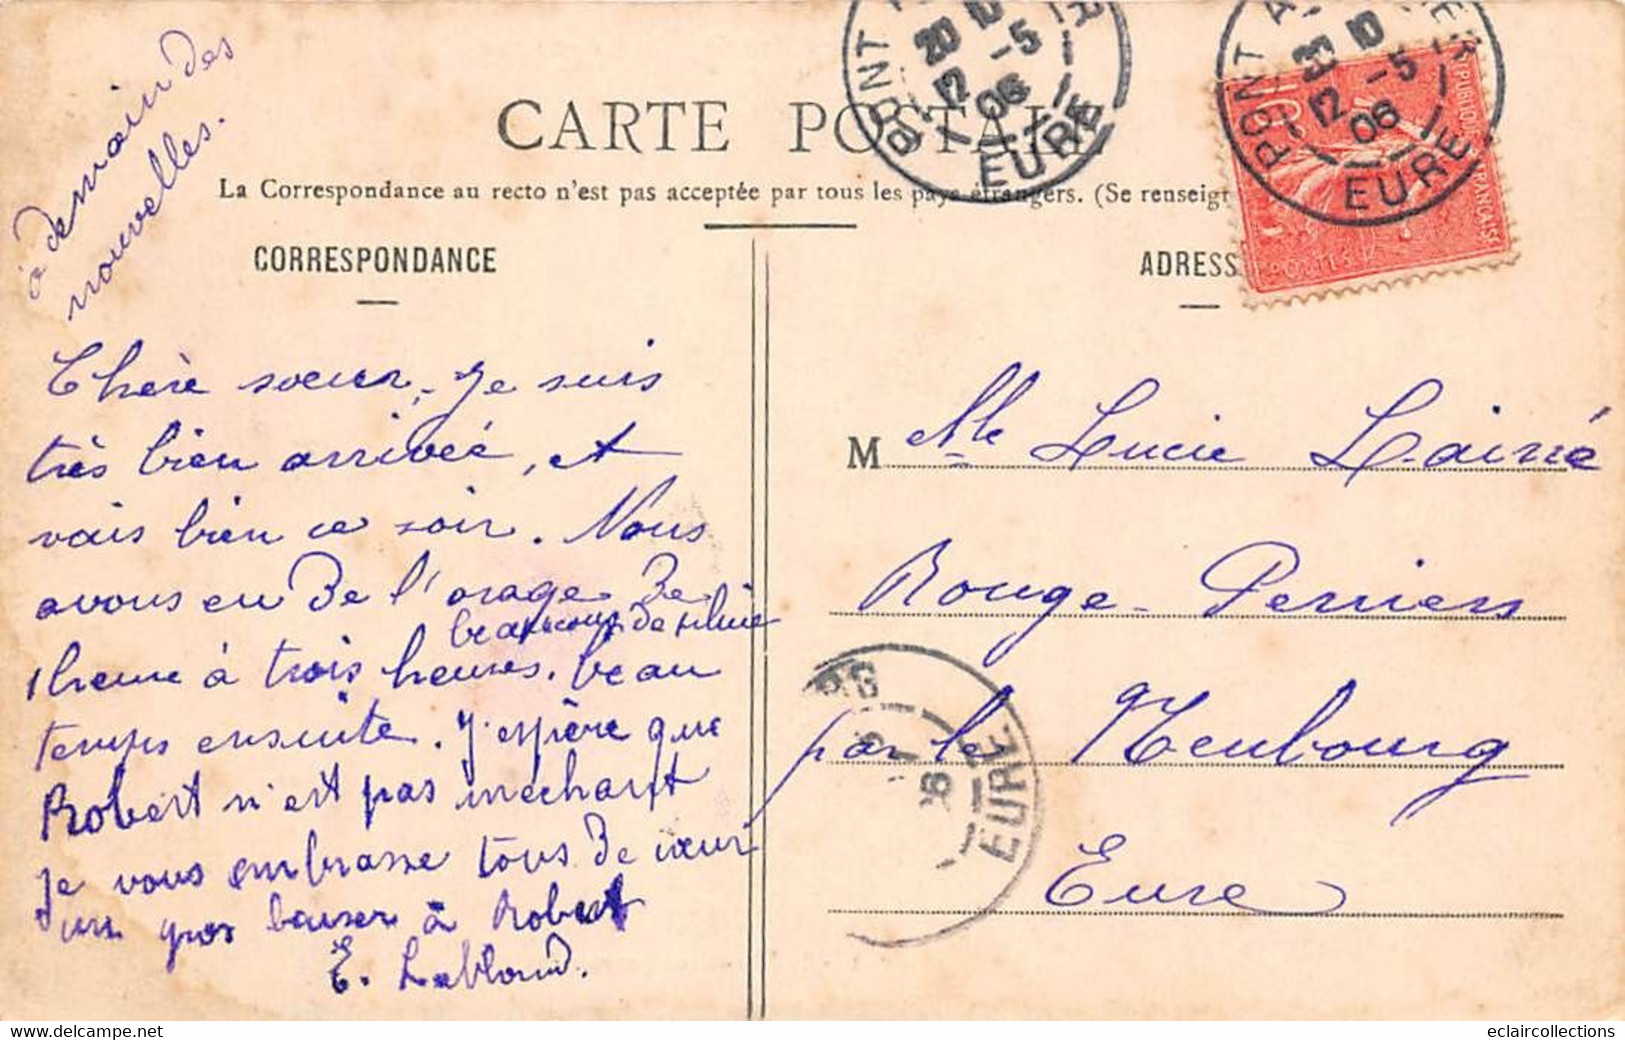 à demain des
nouvelles.
CARTE POSTALE
La Correspondance au recto n'est pas acceptée par tous les pays étrangers. (Se renseigr
CORRESPONDANCE
ADRESS
Chère sœur, Je suis
très bien arrivée, et
vais bien ce soir. Nous
avons eu de l'orage de
beaucoup de pluie
1 heure à trois heures. beau
temps ensuite. J'espère que
Robert n'est pas méchant
Je vous embrasse tous de cœur
un gros baiser à Robert
E. Leblond.
M elle Lucie Lainé
Rouge-Perriers
par le Neubourg
Eure
PONT
20 10
12 -5
06
EURE
PONT A
20 10
12 -5
06
EURE
RG
06
EURE
10
POSTES
FRANÇAISE
eclaircollections